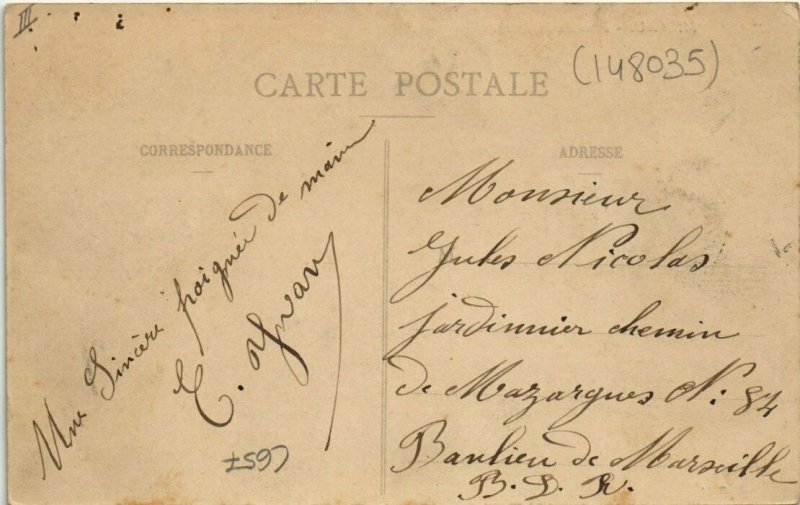 III
(148035)
CARTE POSTALE
CORRESPONDANCE
Une Sincère poignée de main
E. Yvan
C657
ADRESSE
Monsieur
Jules Nicolas
jardinnier chemin
de Mazargues N: 84
Banlieu de Marseille
B. D. R.